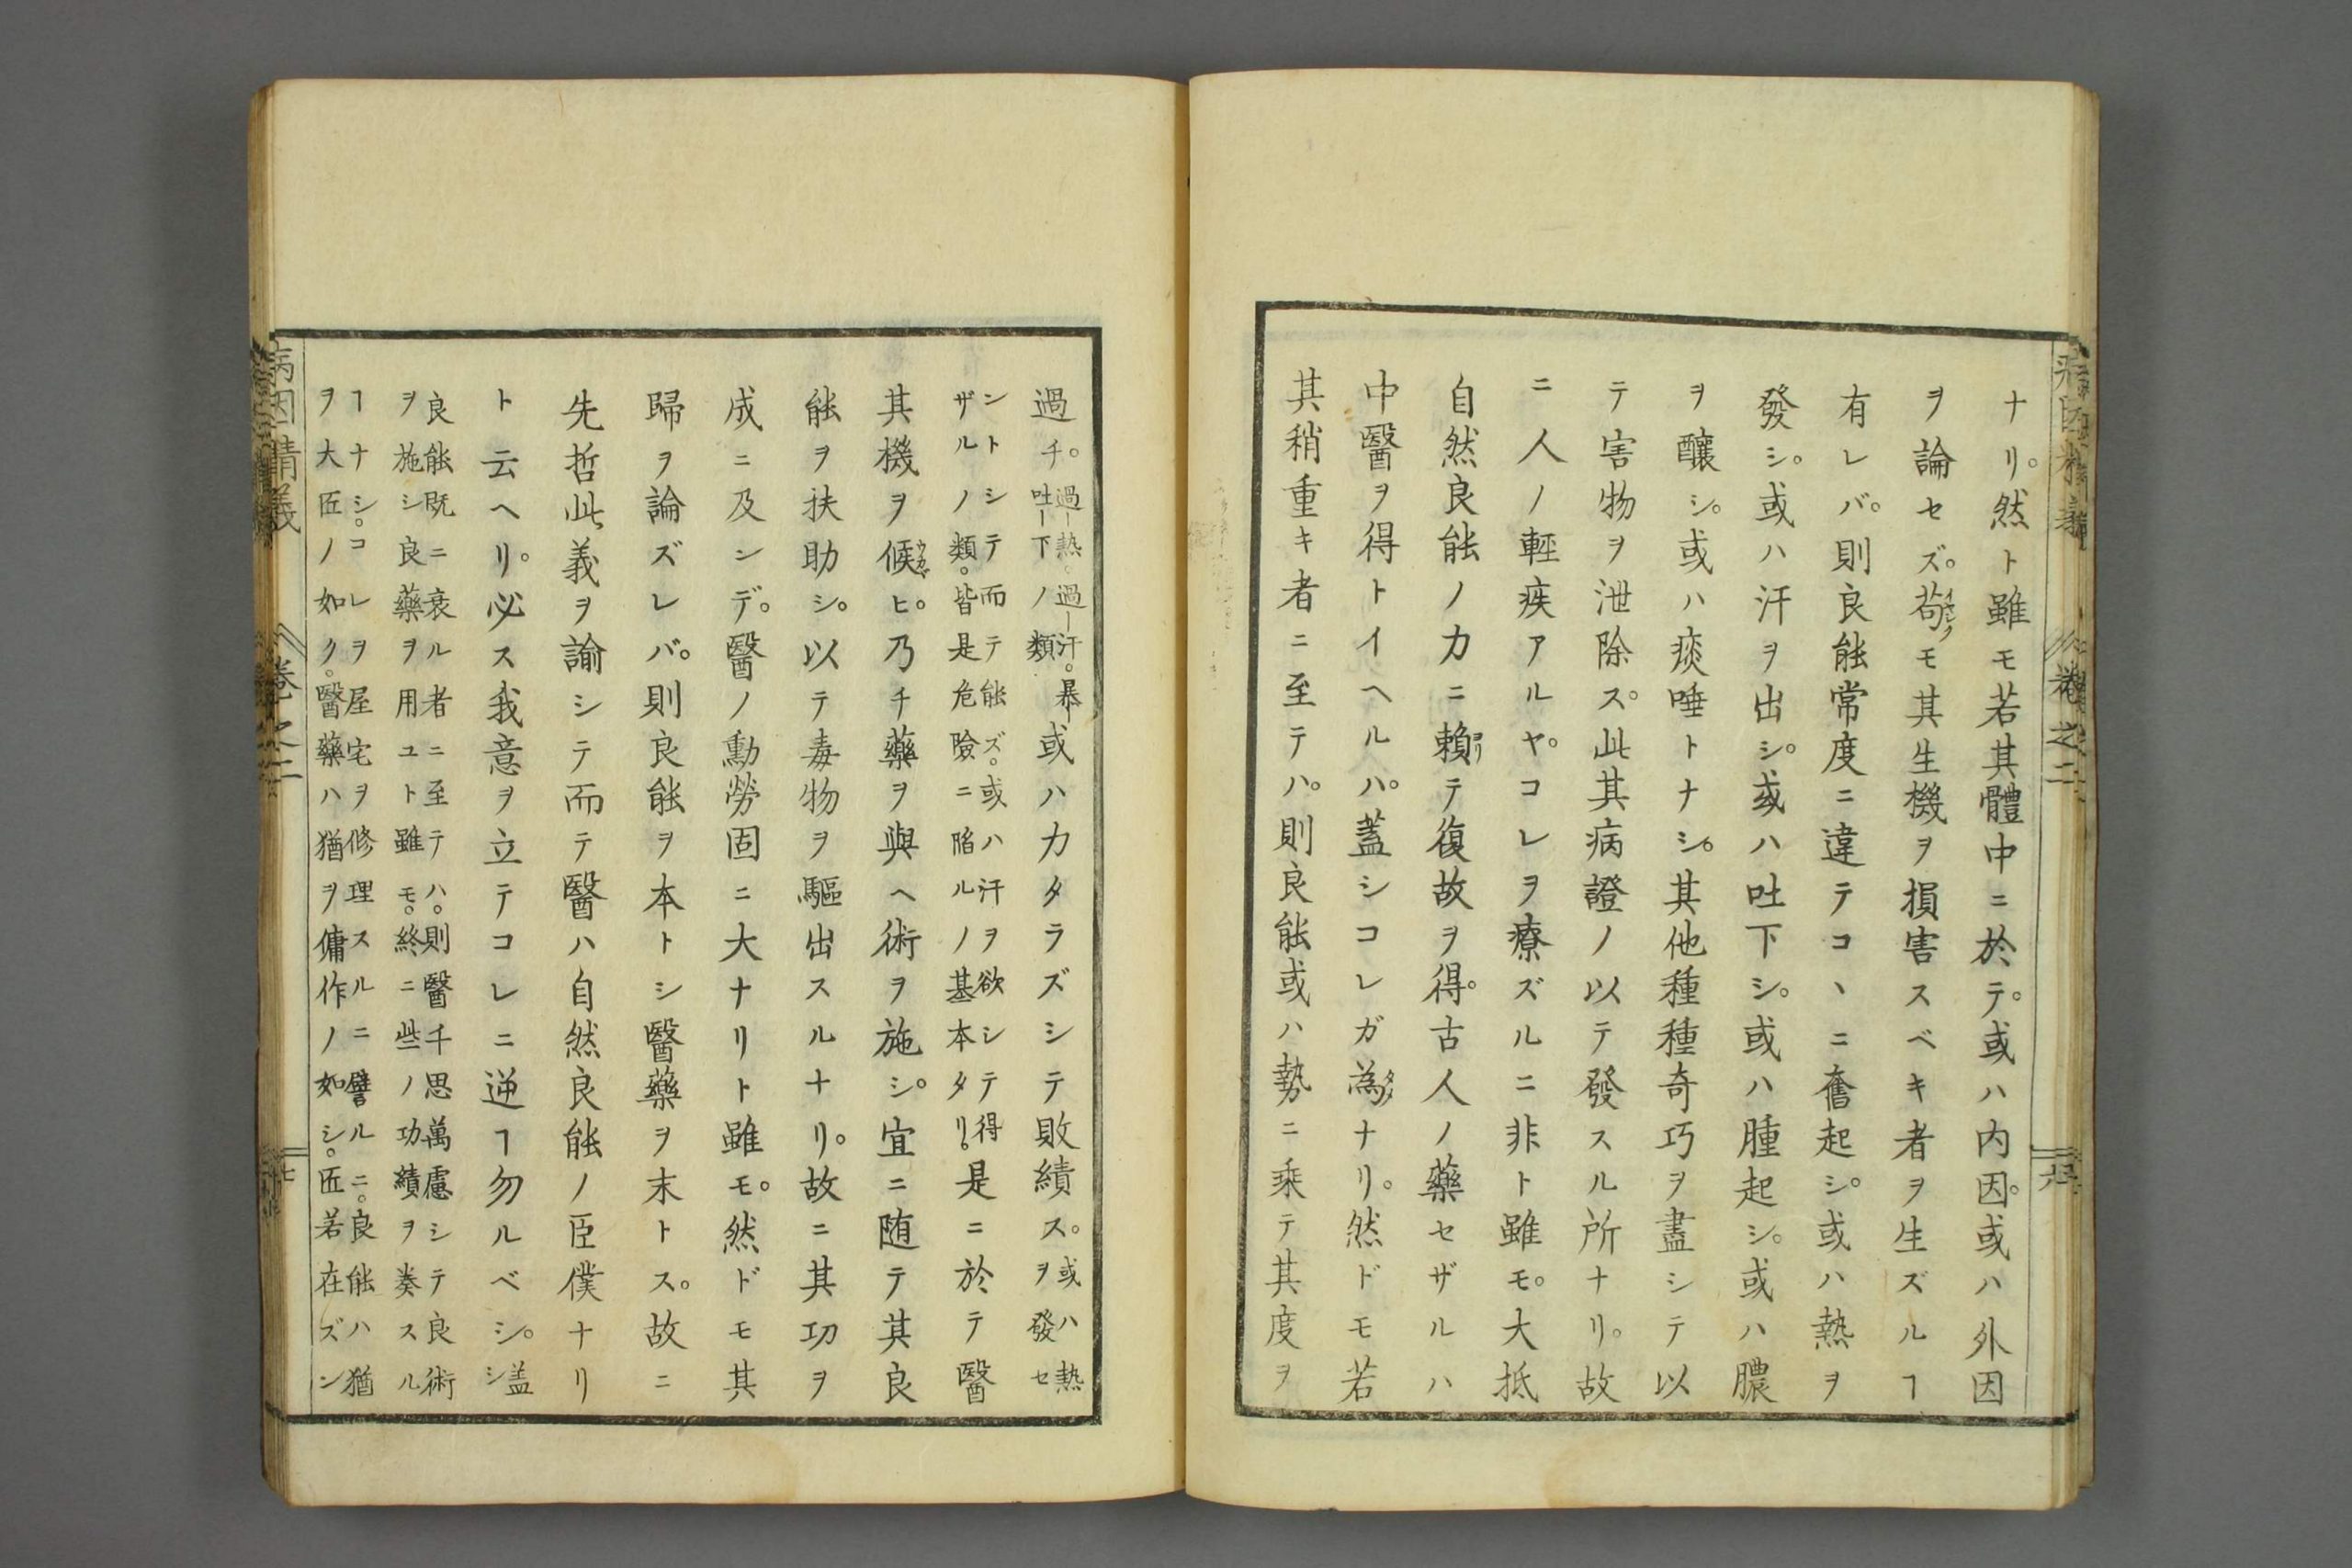 ナリ。然ト雖モ若其體中ニ於テ。或ハ内因。或ハ外因
ヲ論セズ。苟モ其生機ヲ損害スベキ者ヲ生ズルヿ
有レバ。則良能常度ニ違テコヽニ奮起シ。或ハ熱ヲ
發シ。或ハ汗ヲ出シ。或ハ吐下シ。或ハ腫起シ。或ハ膿
ヲ釀シ。或ハ痰唾トナシ。其他種種奇巧ヲ盡シテ以
テ害物ヲ泄除ス。此其病證ノ以テ發スル所ナリ。故
ニ人ノ輕疾アルヤ。コレヲ療ズルニ非ト雖モ。大抵
自然良能ノ力ニ頼テ復故ヲ得。古人ノ藥セザルハ
中醫ヲ得トイヘルハ。蓋シコレガ為ナリ。然ドモ若
其稍重キ者ニ至テハ。則良能或ハ勢ニ乘テ其度ヲ
過チ。過-熱。過-汗。暴-吐-下ノ類或ハ力タラズシテ敗績ス。或ハ熱ヲ發セ
ントシテ而テ能ズ。或ハ汗ヲ欲シテ得ザルノ類。皆是危險ニ陷ルノ基本タリ。是ニ於テ醫
其機ヲ候ヒ。乃チ藥ヲ與ヘ術ヲ施シ。宜ニ随テ其良
能ヲ扶助シ。以テ毒物ヲ驅出スルナリ。故ニ其功ヲ
成ニ及ンデ。醫ノ勳勞固ニ大ナリト雖モ。然ドモ其
歸ヲ論ズレバ。則良能ヲ本トシ醫藥ヲ末トス。故ニ
先哲此義ヲ諭シテ而テ醫ハ自然良能ノ臣僕ナリ
ト云ヘリ。必ス我意ヲ立テコレニ逆ヿ勿ルベシ。盖シ
良能既ニ衰ル者ニ至テハ。則醫千思萬慮シテ良術
ヲ施シ良藥ヲ用ユト雖モ。終ニ些ノ功績ヲ奏スル
ヿナシ。コレヲ屋宅ヲ修理スルニ譬ルニ。良能ハ猶
ヲ大匠ノ如ク。醫藥ハ猶ヲ傭作ノ如シ。匠若在ズン
病因精義
卷之二
七
卷之二
六